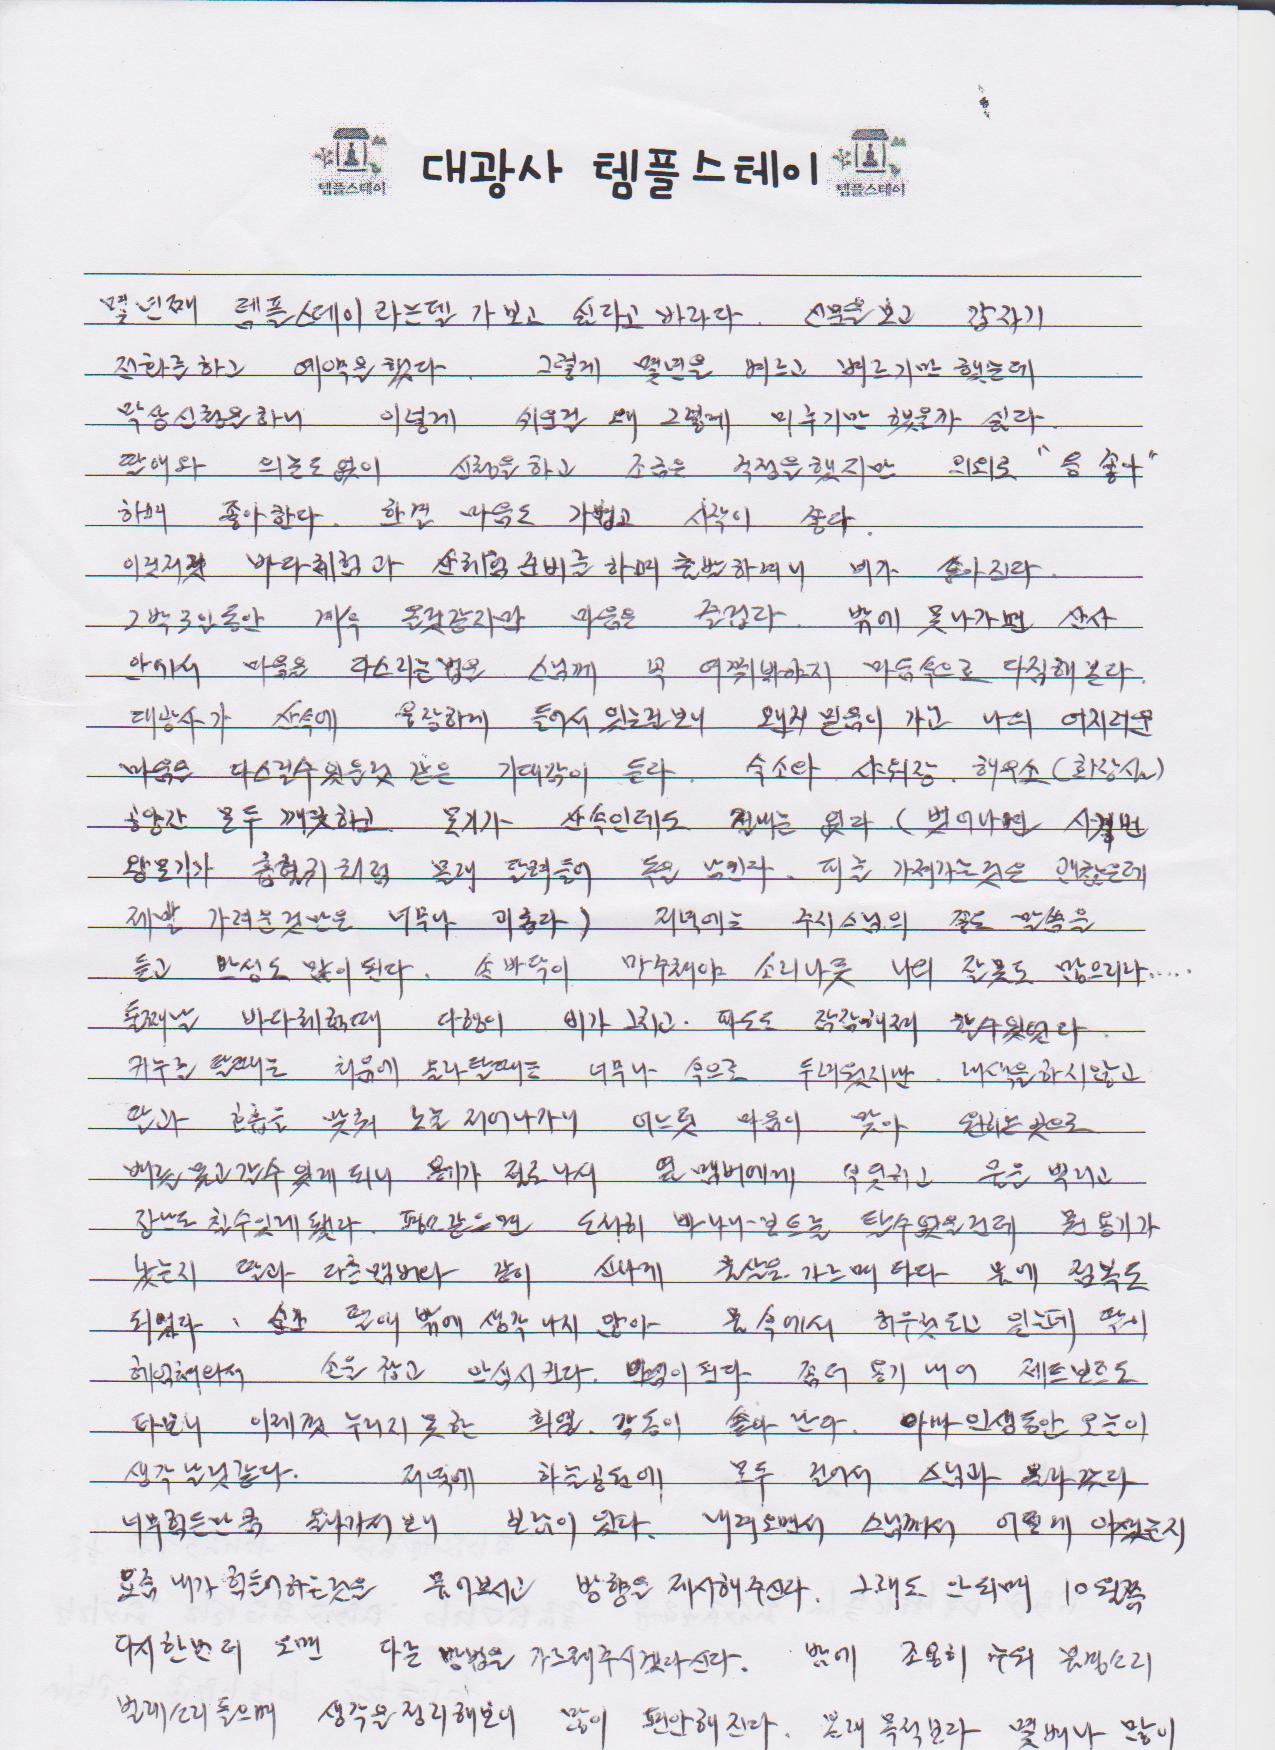 대광사 템플스테이
템플스테이
템플스테이
몇년째 템플스테이라는델 가보고 싶다고 바라다. 신문을 보고 갑자기
전화를하고 예약을했다. 그렇게 몇년을 벼르고 벼르기만 했는데
막상신청을하니 이렇게 쉬운걸 왜 그렇게 미루기만 했을까 싶다.
딸애와 의논도없이 신청을하고 조금은 걱정을했지만 의외로 "응 좋아"
하며 좋아한다. 한결 마음도 가볍고 시작이 좋다.
이것저것 바다체험과 산체험준비를 하며 출발하려니 비가 쏟아진다.
2박3일동안 계속 올것같지만 마음은 즐겁다. 밖에 못나가면 산사
안에서 마음을 다스리는법을 스님께 꼭 여쭤봐야지 마음속으로 다짐해본다.
대광사가 산속에 웅장하게 들어서있는걸보니 왠지 믿음이 가고 나의 어지러운
마음을 다스릴수있을것 같은 기대감이 들다. 숙소와 샤워장. 해우소(화장실)
공양간 모두 깨끗하고 모기가 산속인데도 없다 (벗어나면
왕모기가 흡혈귀처럼 몰래 달려들어 피를 가져가는것은 괜찮은데
제발 가려운것만은 너무나 괴롭다) 저녁에는 주지스님의 좋은 말씀을
듣고 반성도 많이된다. 손바닥이 마주쳐야 소리나듯 나의 잘못도 많으리라.....
둘째날 바다체험때 다행이 비가 그치고. 파도도 잠잠해져 할수있었다.
카누를 탈때는 처음에 올라탈때는 너무나 속으로 두려웠지만. 내색을하지않고
딸과 호흡을 맞춰 노를 저어나가니 어느덧 마음이 맞아 원하는곳으로
배를 몰고갈수 있게 되니 용기가 절로나서 옆 멤버에게 물을 뿌리고
장난도 칠수있게됐다. 평소같으면 도저히 바나나보트를 탈수없을건데 뭔 용기가
났는지 딸과 다른멤버와 같이 신나게 물살을 가르며 타다 물에 전복도
되었다. 순간 딸애 밖에 생각나지 않아 물 속에서 허우적되고 있는데 딸이
헤엄쳐와서 손을 잡고 안심시킨다. 좀더 용기 내어 제트보트도
타보니 이제껏 누리지 못한 희열. 감동이 솟아 난다. 아마 인생동안 오늘이
생각날것같다. 저녁에 하늘공원에 모두 걸어서 스님과 올라갔다
너무힘든만큼 올라가서 보니 보람이 있다. 내려오면서 스님께서 어떻게 아셨는지
요즘 내가 힘들어하는것을 물어보시고 방향을 제시해주신다. 그래도 안되면 10월쯤
다시한번 더 오면 다른 방법을 가르쳐주시겠다신다. 밤에 조용히 풍경소리
벌레소리들으며 생각을정리해보니 많이 편안해진다. 본래 목적보다 몇배나 많이